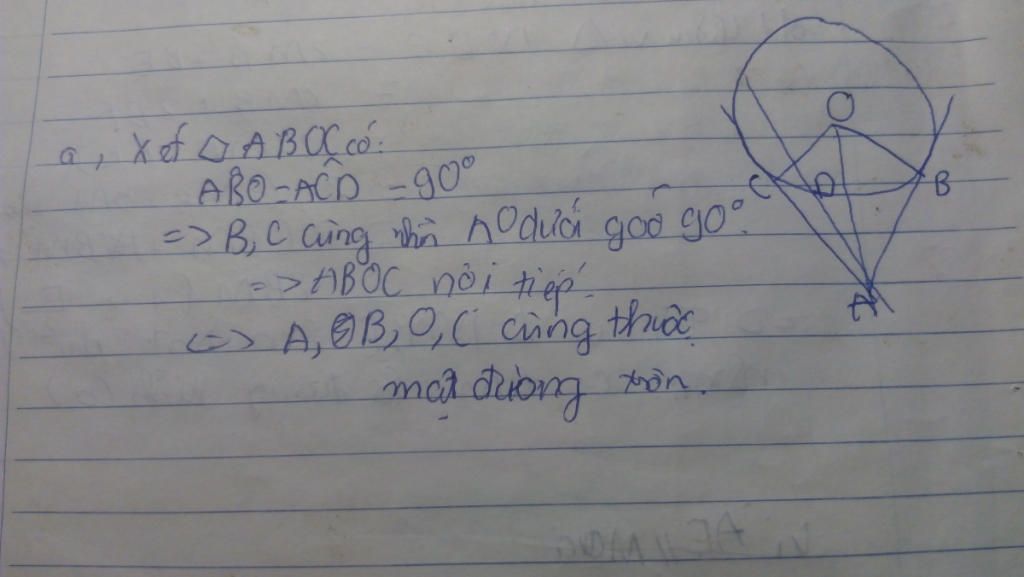 a, Xét ◇ ABOC có:
ABO = ACO = 90°
=> B, C cùng nhìn AO dưới goó 90°.
=> ABOC nội tiếp.
<=> A, B, O, C cùng thuộc
một đường tròn.
O
C
D
B
A